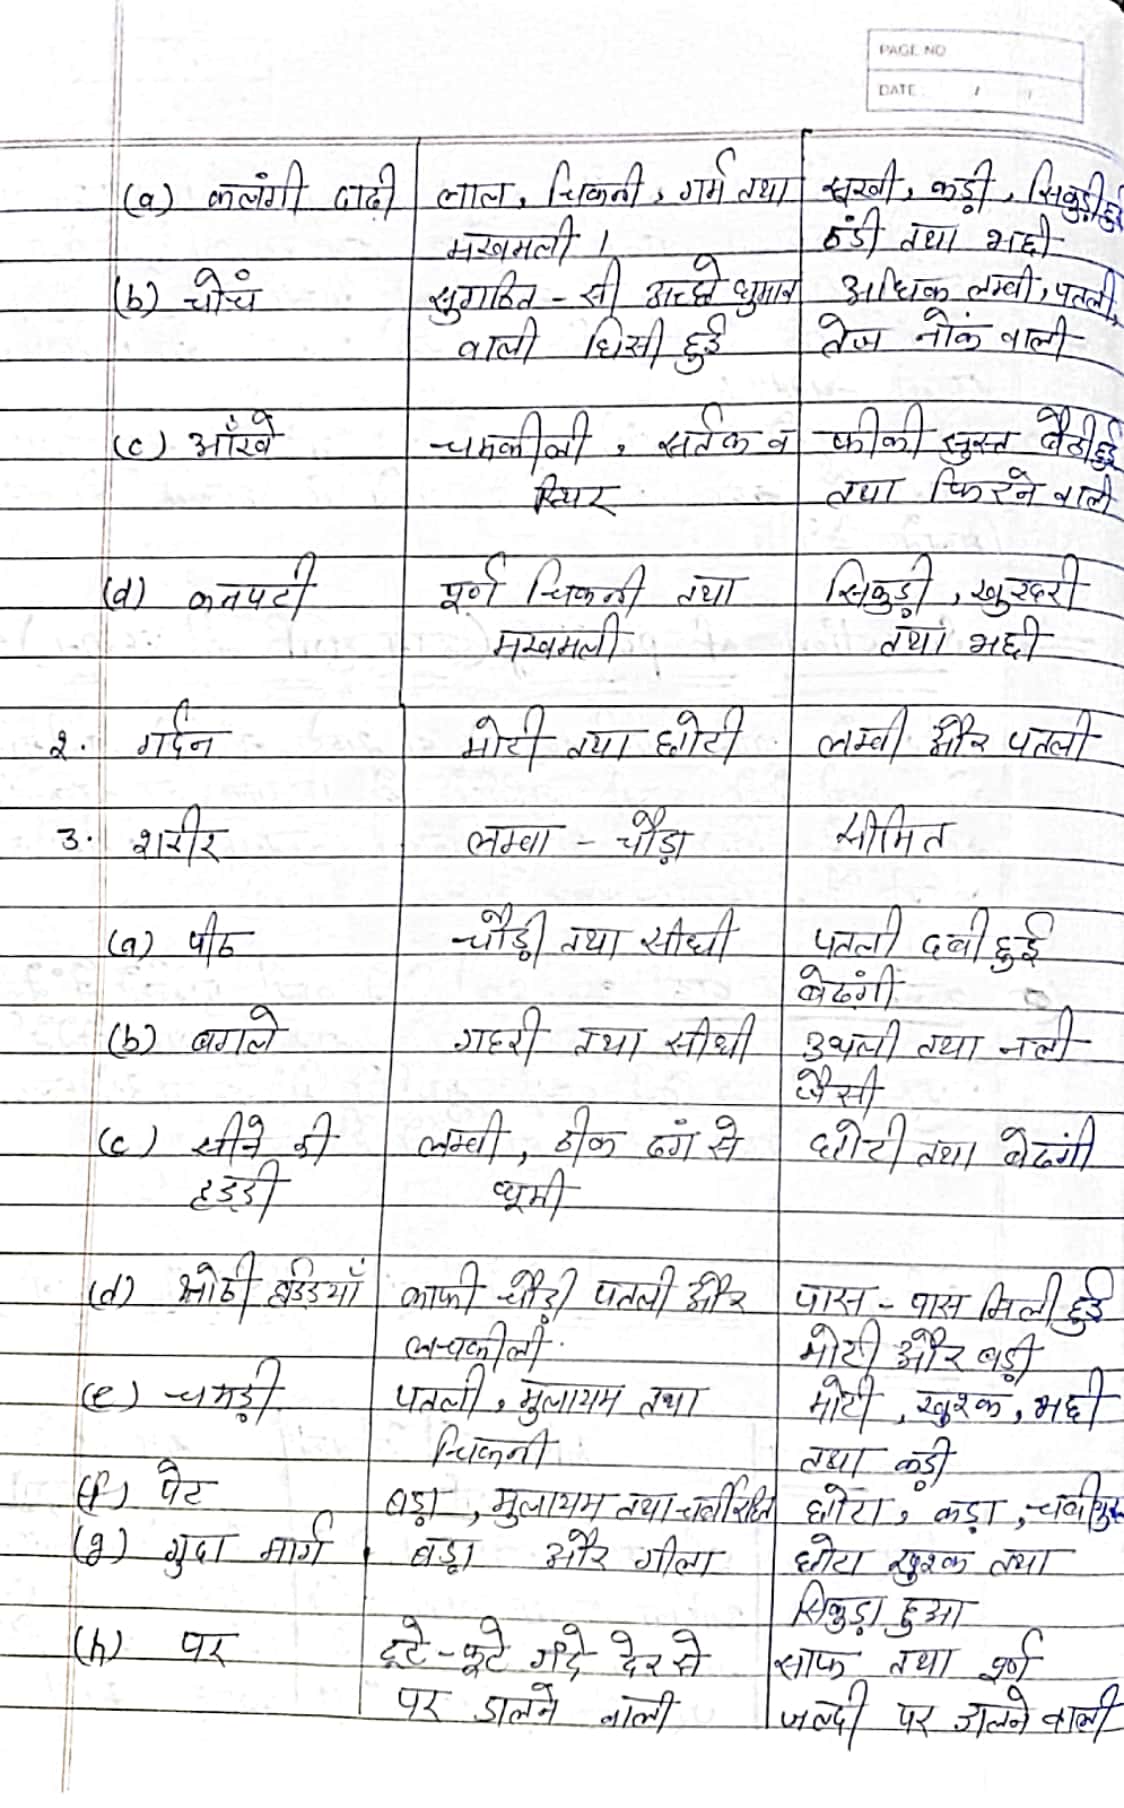 PAGE NO
DATE : / /
(a) कलंगी दाढ़ी लाल, चिकनी, गर्म तथा सूखी, कड़ी, सिकुड़ी हुई
मखमली । ठंडी तथा भद्दी
(b) चोंच सुगठित - सी अच्छे घुमाव अधिक लम्बी, पतली,
वाली घिसी हुई तेज नोंक वाली
(c) आँखे चमकीली, सर्तक व फीकी सुस्त बैठी हुई
स्थिर तथा फिरने वाली
(d) कनपटी पूर्ण चिकनी तथा सिकुड़ी, खुरदरी
मखमली तथा भद्दी
२. गर्दन मोटी तथा छोटी लम्बी और पतली
३. शरीर लम्बा - चौड़ा सीमित
(a) पीठ चौड़ी तथा सीधी पतली दबी हुई
बेढंगी
(b) बगले गहरी तथा सीधी उथली तथा नली
जैसी
(c) सीने की लम्बी, ठीक ढंग से छोटी तथा बेढंगी
हड्डी घूमी
(d) हड्डियाँ काफी चौड़ी पतली और पास - पास मिली हुई
लचकीली मोटी और बड़ी
(e) चमड़ी पतली, मुलायम तथा मोटी, खुश्क, भद्दी
चिकनी तथा कड़ी
(f) पेट बड़ा, मुलायम तथा चर्बी रहित छोटा, कड़ा, चर्बीयुक्त
(g) गुदा मार्ग बड़ा और गीला छोटा खुश्क तथा
सिकुड़ा हुआ
(h) पर टूटे - फूटे गंदे देर से साफ तथा पूर्ण
पर डालने वाली जल्दी पर डालने वाली